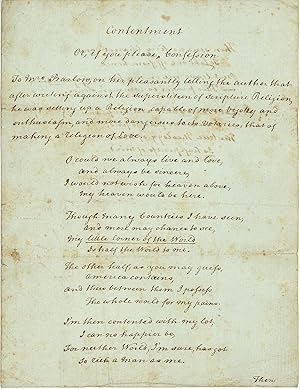 Contentment
Or, if you please, Confession
To Mrs. Barlow, on her pleasantly telling the author that
after writing against the Superstition of Scripture Religion,
he was setting up a Religion, capable of more bigotry and
enthusiasm, and more dangerous to its Votaries, that of
making a religion of Love.
O could we always live and love,
and always be sincere,
I would not wish for heaven above,
my heaven would be here.
Though many Countries I have seen,
and more may chance to see,
My little Corner of the World
Is half the World to me.
The other half as you may guess,
America contains
And thus between them I possess
The whole world for my pains.
I'm then contented with my lot,
I can no happier be,
For neither World, I'm sure, has got
So rich a man as me.
Then